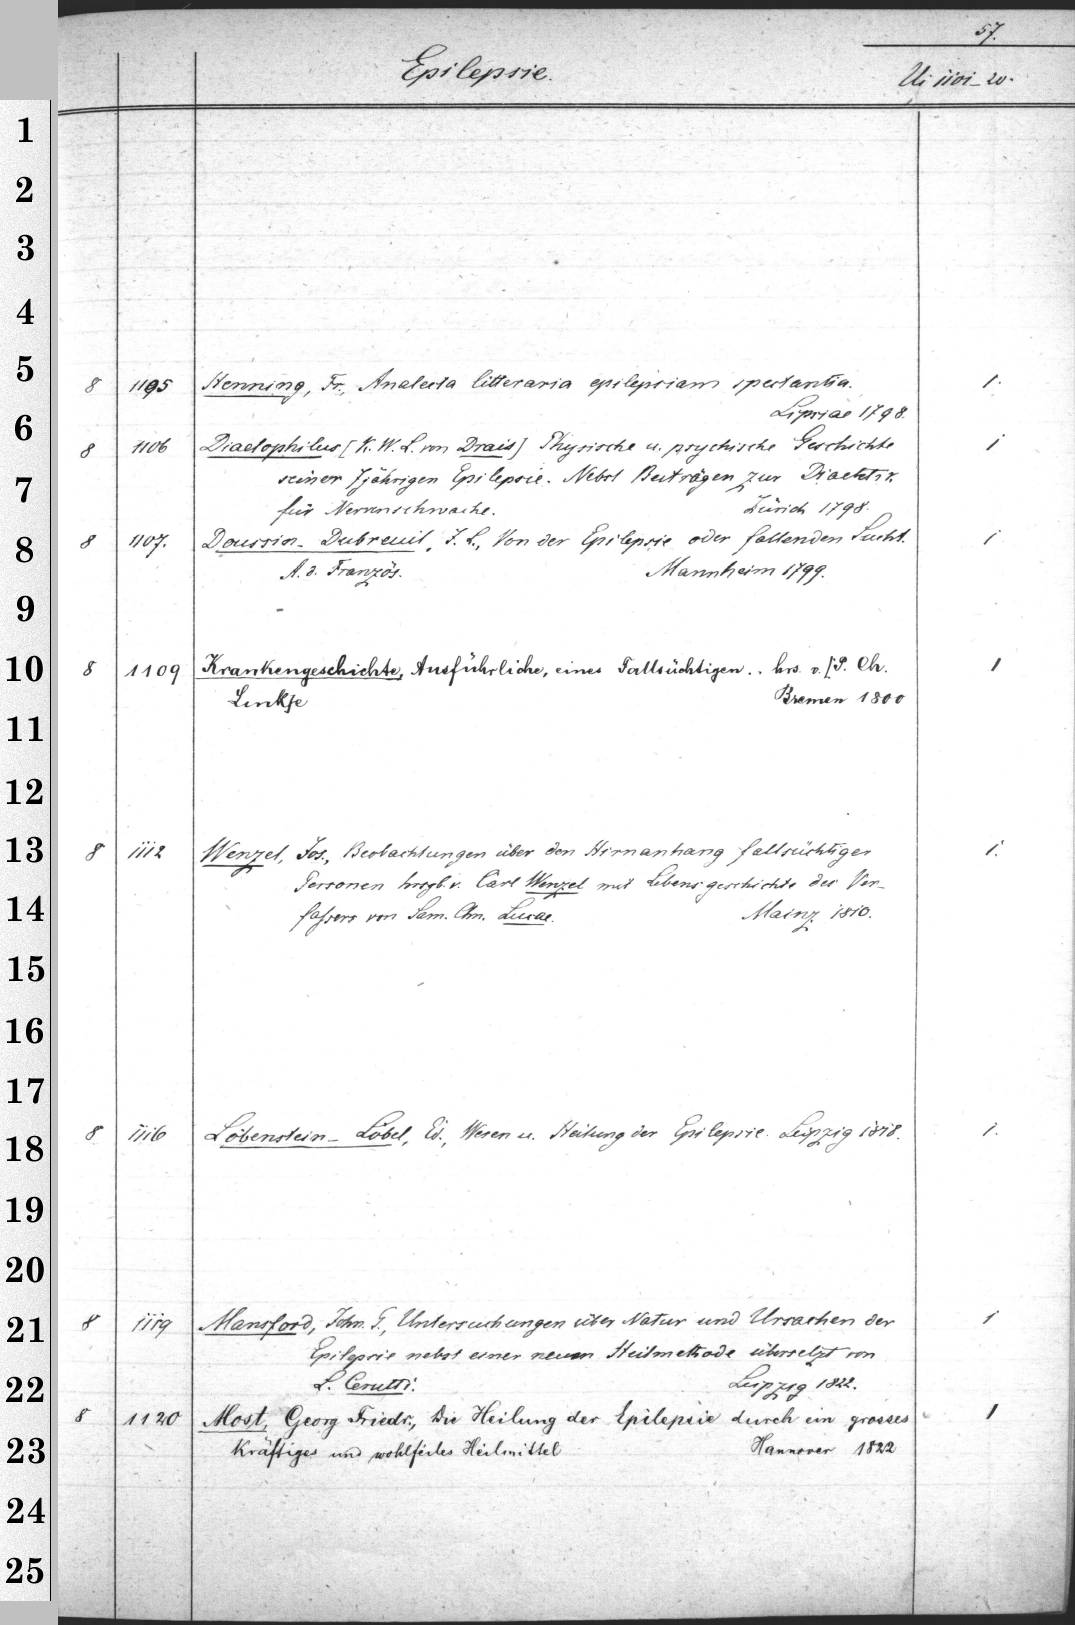 57.
Epilepsie.
Ui 1101-20.
1
2
3
4
5
8 1105 Henning, Fr., Analecta litteraria epilepsiam spectantia. 1.
Lipsiae 1798.
6
8 1106 Diaetophilus [K. W. L. von Drais] Physische u. psychische Geschichte 1
7
seiner 7jährigen Epilepsie. Nebst Beiträgen zur Diaetetik
für Nervenschwache. Zürich 1798.
8
8 1107. Doussin-Dubreuil, J. L., Von der Epilepsie oder fallenden Sucht. 1
A. d. Französ. Mannheim 1799.
9
10
8 1109 Krankengeschichte, Ausführliche, eines Fallsüchtigen .. hrs. v. [P. Ch. 1
Bremen 1800
11
12
13
8 1112 Wenzel, Jos., Beobachtungen über den Hirnanhang fallsüchtiger 1.
Personen hrsgb. v. Carl Wenzel mit Lebensgeschichte des Ver-
14
faßers von Sam. Chn. Lucae. Mainz 1810.
15
16
17
18
8 1116 Löbenstein-Löbel, Ed., Wesen u. Heilung der Epilepsie. Leipzig 1818. 1.
19
20
21
8 1119 Mansford, Johm. G., Untersuchungen über Natur und Ursachen der 1
Epilepsie nebst einer neuen Heilmethode übersetzt von
22
L. Cerutti. Leipzig 1822.
8 1120 Most, Georg Friedr., Die Heilung der Epilepsie durch ein grosses 1
23
kräftiges und wohlfeiles Heilmittel Hannover 1822
24
25